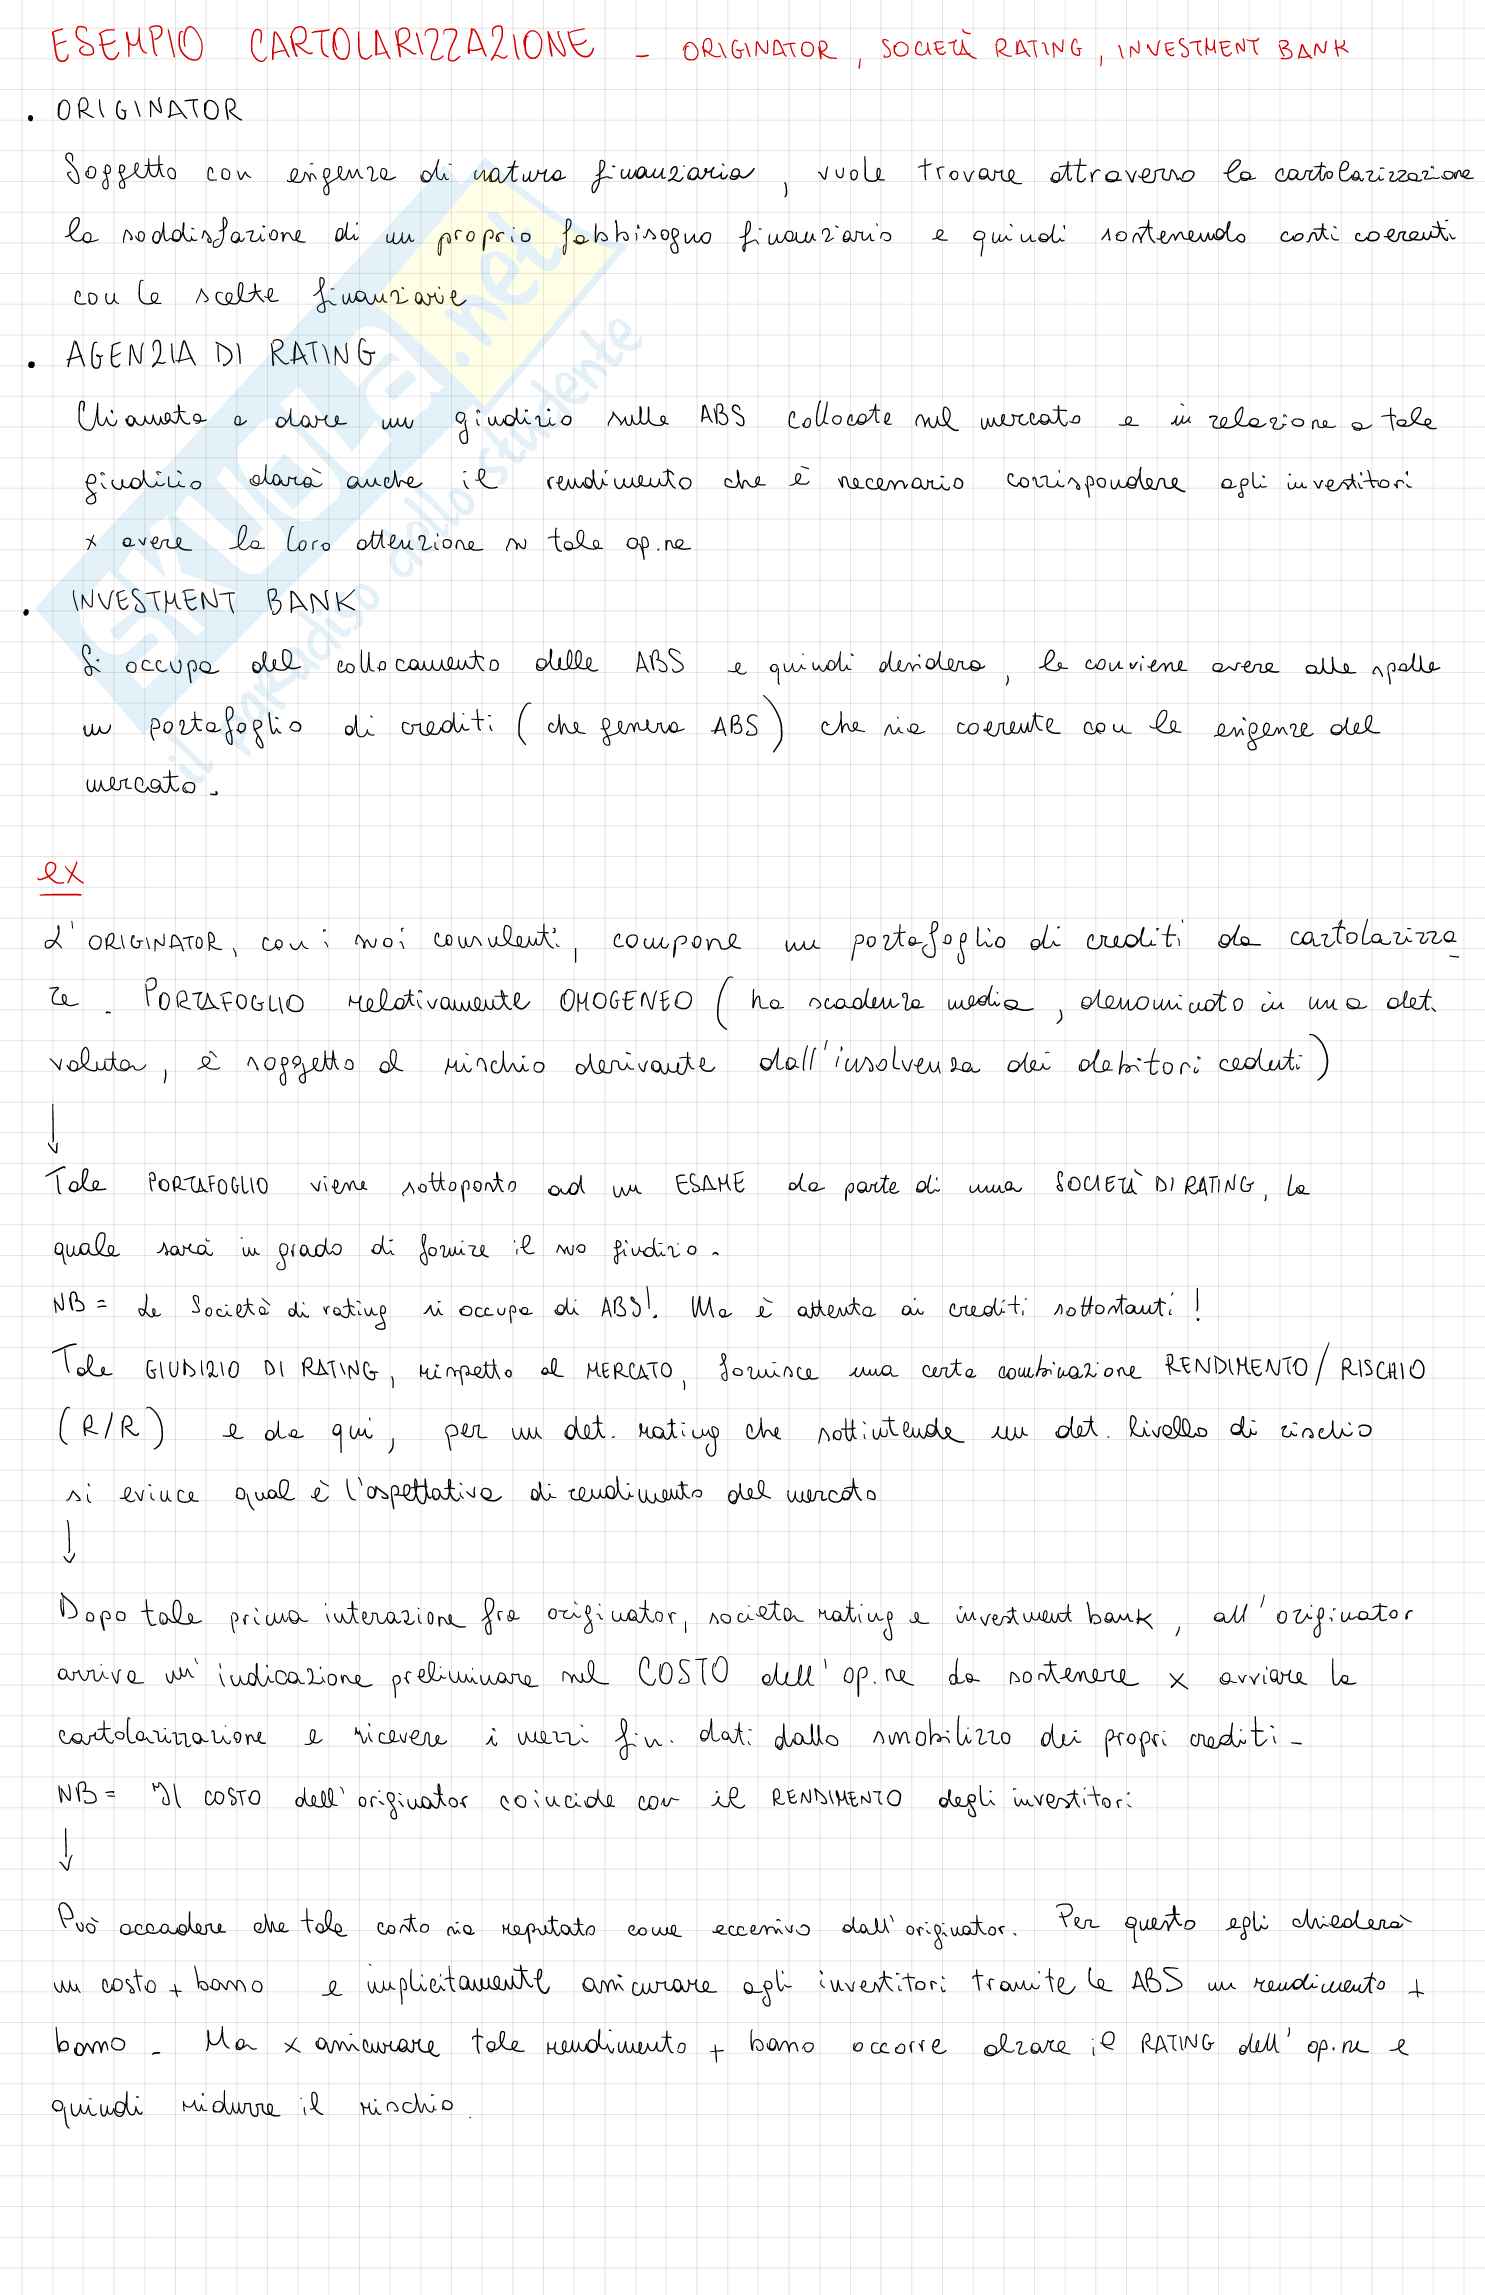 ESEMPIO CARTOLARIZZAZIONE - ORIGINATOR, SOCIETÀ RATING, INVESTMENT BANK
. ORIGINATOR
Soggetto con esigenze di natura finanziaria, vuole trovare attraverso la cartolarizzazione
la soddisfazione di un proprio fabbisogno finanziario e quindi sostenendo costi coerenti
con le scelte finanziarie
. AGENZIA DI RATING
Chiamata a dare un giudizio sulle ABS collocate sul mercato e in relazione a tale
giudizio darà anche il rendimento che è necessario corrispondere agli investitori
x avere la loro attenzione su tale op.ne
. INVESTMENT BANK
Si occupa del collocamento delle ABS e quindi desidera, le conviene avere alle spalle
un portafoglio di crediti (che genera ABS) che sia coerente con le esigenze del
mercato.
ex
L'ORIGINATOR, con i suoi consulenti, compone un portafoglio di crediti da cartolarizza-
re. PORTAFOGLIO relativamente OMOGENEO (ha scadenza media, denominato in una det.
valuta, è soggetto al rischio derivante dall'insolvenza dei debitori ceduti)
↓
Tale PORTAFOGLIO viene sottoposto ad un ESAME da parte di una SOCIETÀ DI RATING, la
quale sarà in grado di fornire il suo giudizio.
NB = La Società di rating si occupa di ABS!. Ma è attenta ai crediti sottostanti!
Tale GIUDIZIO DI RATING, rispetto al MERCATO, fornisce una certa combinazione RENDIMENTO/RISCHIO
(R/R) e da qui, per un det. rating che sottintende un det. livello di rischio
si evince qual è l'aspettativa di rendimento del mercato
↓
Dopo tale prima interazione fra originator, società rating e investment bank, all'originator
arriva un'indicazione preliminare sul COSTO dell'op.ne da sostenere x avviare la
cartolarizzazione e ricevere i mezzi fin. dati dallo smobilizzo dei propri crediti.
NB = Il COSTO dell'originator coincide con il RENDIMENTO degli investitori
↓
Può accadere che tale costo sia reputato come eccessivo dall'originator. Per questo egli chiederà
un costo + basso e implicitamente assicurare agli investitori tramite le ABS un rendimento +
basso. Ma x assicurare tale rendimento + basso occorre alzare il RATING dell'op.ne e
quindi ridurre il rischio.
SKUOLa.net
il paradiso dello studente